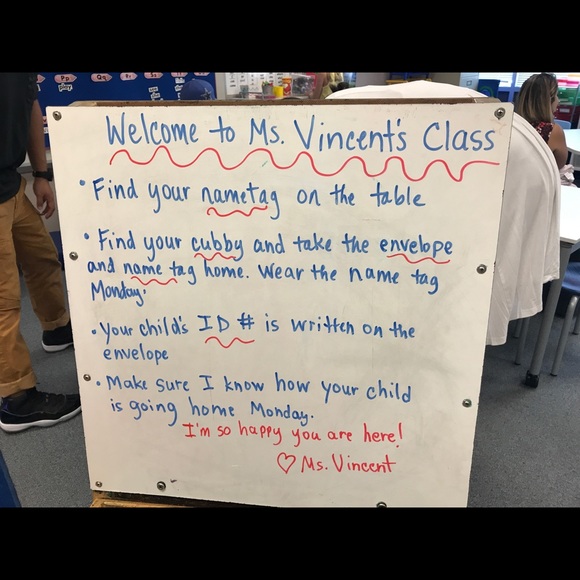 Pp Qq
Welcome to Ms. Vincent's Class
• Find your nametag on the table
• Find your cubby and take the envelope
and name tag home. Wear the name tag
Monday.
• Your child's ID # is written on the
envelope
• Make sure I know how your child
is going home Monday.
I'm so happy you are here!
♡ Ms. Vincent